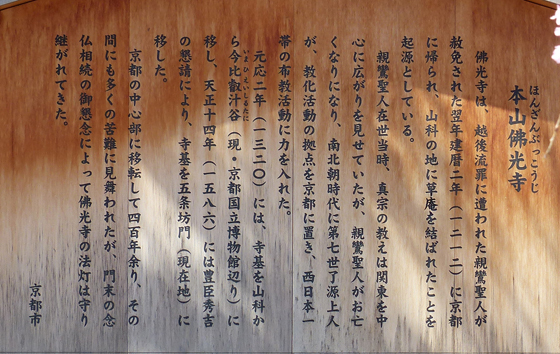 ほんざんぶっこうじ
本山佛光寺
佛光寺は、越後流罪に遭われた親鸞聖人が
赦免された翌年建暦二年（一二一二）に京都
に帰られ、山科の地に草庵を結ばれたことを
起源としている。
親鸞聖人在世当時、真宗の教えは関東を中
心に広がりを見せていたが、親鸞聖人がお亡
くなりになり、南北朝時代に第七世了源上人
が、教化活動の拠点を京都に置き、西日本一
帯の布教活動に力を入れた。
元応二年（一三二〇）には、寺基を山科か
いまひえいしるたに
ら今比叡汁谷（現・京都国立博物館辺り）に
移し、天正十四年（一五八六）には豊臣秀吉
の懇請により、寺基を五条坊門（現在地）に
移した。
京都の中心部に移転して四百年余り、その
間にも多くの苦難に見舞われたが、門末の念
仏相続の御懇念によって佛光寺の法灯は守り
継がれてきた。
京都市